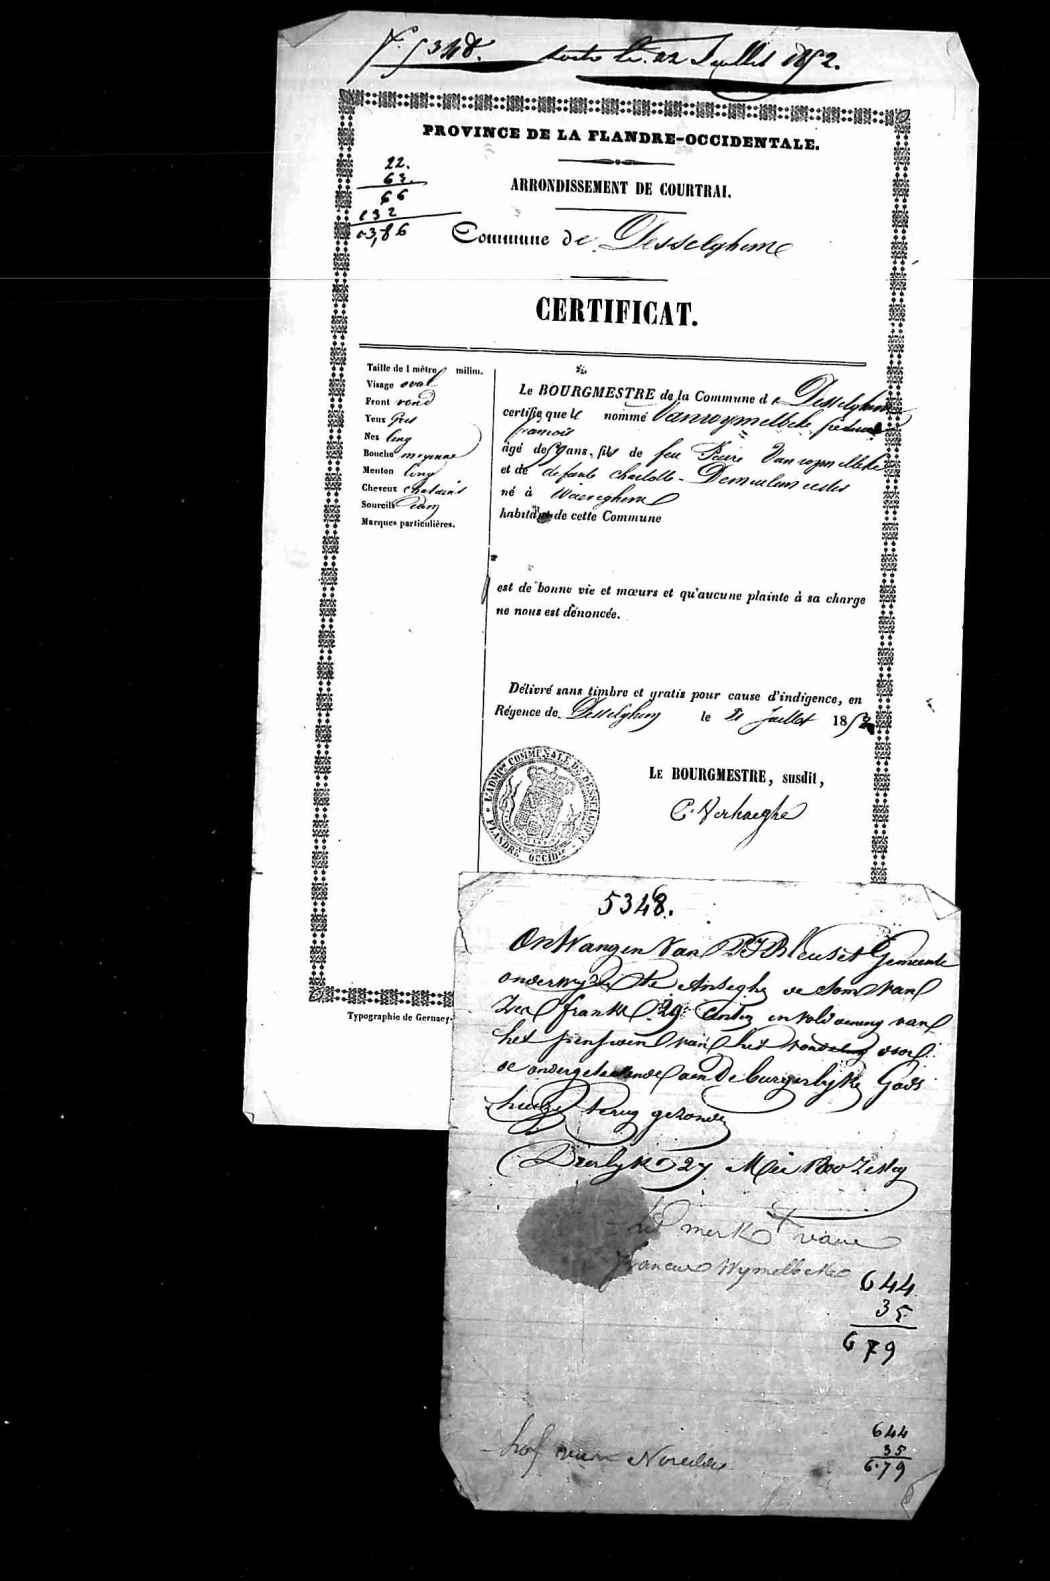 N. 5348. sorti le. 22 Juillet 1852.
PROVINCE DE LA FLANDRE-OCCIDENTALE.
22.
63.
66
132
13,86
ARRONDISSEMENT DE COURTRAI.
Commune de Desselghem
CERTIFICAT.
Taille de 1 mètre milim.
Visage oval
Front rond
Yeux gris
Nez long
Bouche moyenne
Menton long
Cheveux chatains
Sourcils idem
Marques particulières.
Le BOURGMESTRE de la Commune de Desselghem
certifie que le nommé Vanwymelbeke
françois
âgé de ans, fils de feu Pierre Vanwymelbeke
et de défunte charlotte Demeulemeester
né à Waereghem
habitant de cette Commune
est de bonne vie et mœurs et qu'aucune plainte à sa charge
ne nous est dénoncée.
Délivré sans timbre et gratis pour cause d'indigence, en
Régence de Desselghem le 21 juillet 1852
L'ADMON COMMUNALE DE DESSELGHEM
FLANDRE OCCIDle
LE BOURGMESTRE, susdit,
C. Verhaeghe
Typographie de Gernaey-
5348.
Ontvangen Van Gemeente
onderwyzer te Anseghem de Som van
franks 29 in voldoening van
het pensioen van het voor
de ondergeteekende aen De burgerlyke Gods
huizen terug gezonden
Deerlyk 27 Mei
het merk + van
Wymelbeke
644
35
679
hof van
644
35
679